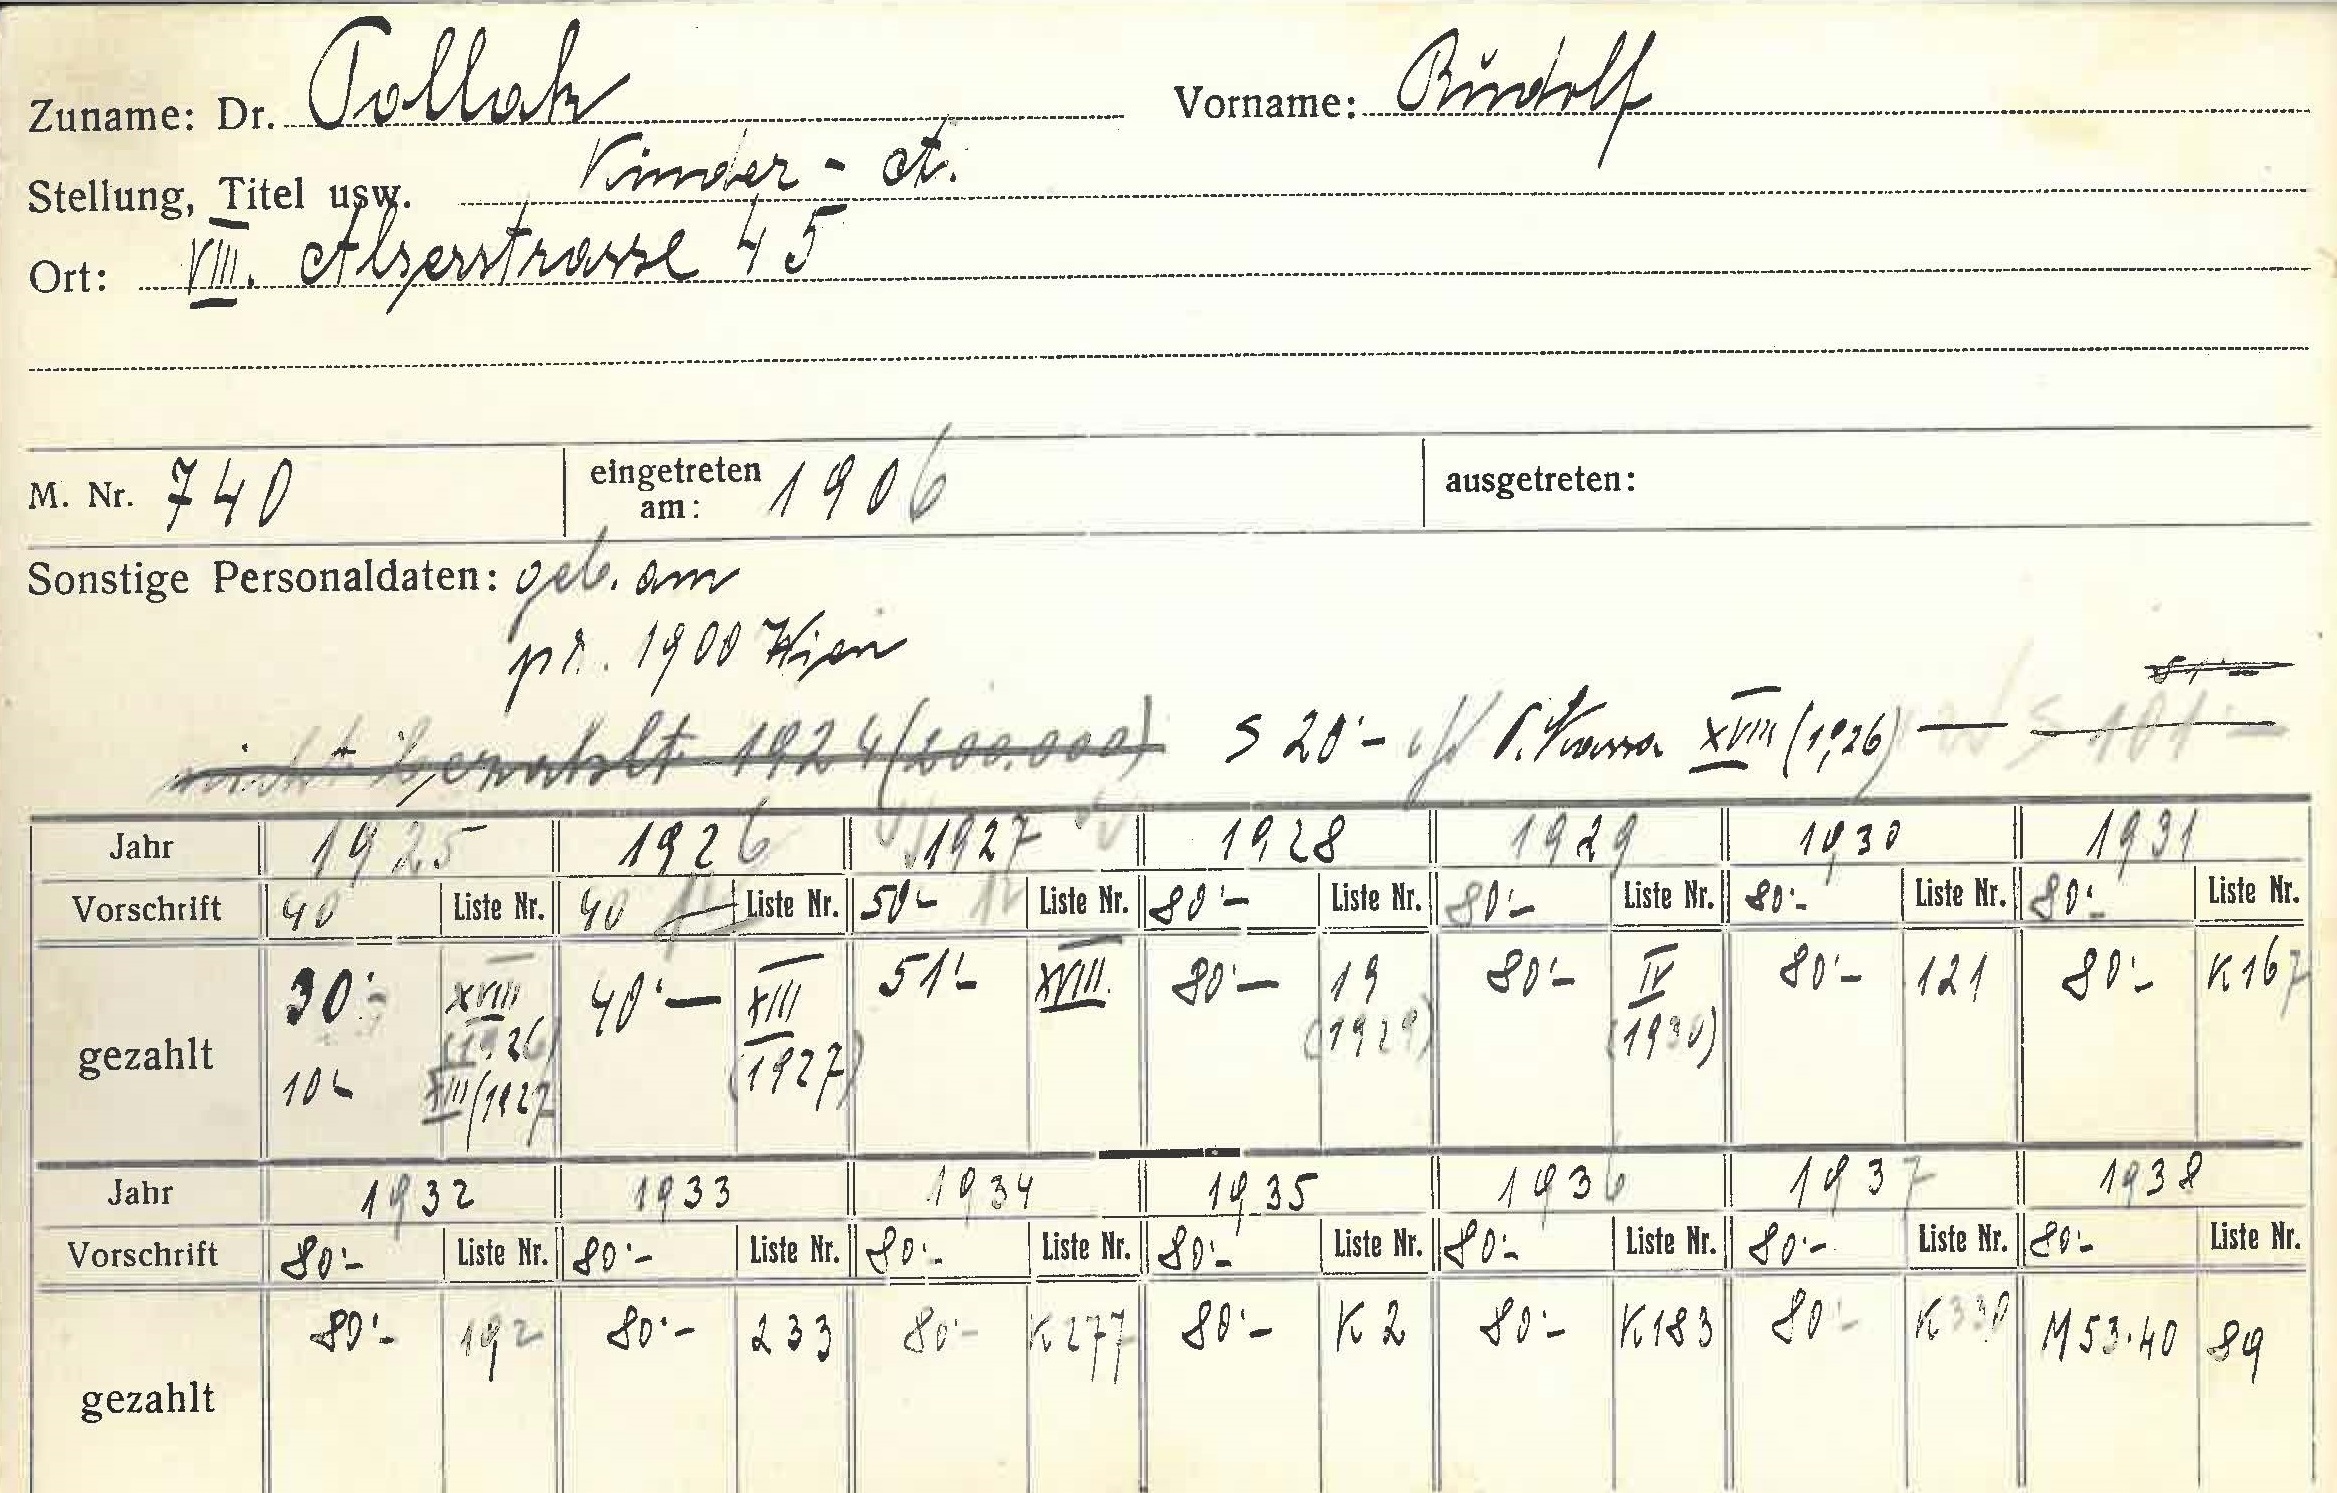 Zuname: Dr. Pollak Vorname: Rudolf
Stellung, Titel usw. Kinder-A.
Ort: VIII. Alserstrasse 45
M. Nr. 740 eingetreten am: 1906 ausgetreten:
Sonstige Personaldaten: geb. am
pr. 1900 Wien
nicht bezahlt 1924 (200.000) S 20·- XVIII (1926) — S 101·- 51·-
Jahr 1925 1926 1927 1928 1929 1930 1931
Vorschrift 40 Liste Nr. 40 Liste Nr. 50·- Liste Nr. 80·- Liste Nr. 80·- Liste Nr. 80·- Liste Nr. 80·- Liste Nr.
gezahlt 30·- XVIII (1926) 40·- XIII (1927) 51·- XVIII. 80·- 19 (1929) 80·- IV (1930) 80·- 121 80·- K 167
10·- XIII (1927
Jahr 1932 1933 1934 1935 1936 1937 1938
Vorschrift 80·- Liste Nr. 80·- Liste Nr. 80·- Liste Nr. 80·- Liste Nr. 80·- Liste Nr. 80·- Liste Nr. 80·- Liste Nr.
gezahlt 80·- 192 80·- 233 80·- K 277 80·- K 2 80·- K 183 80·- K 330 M 53·40 89